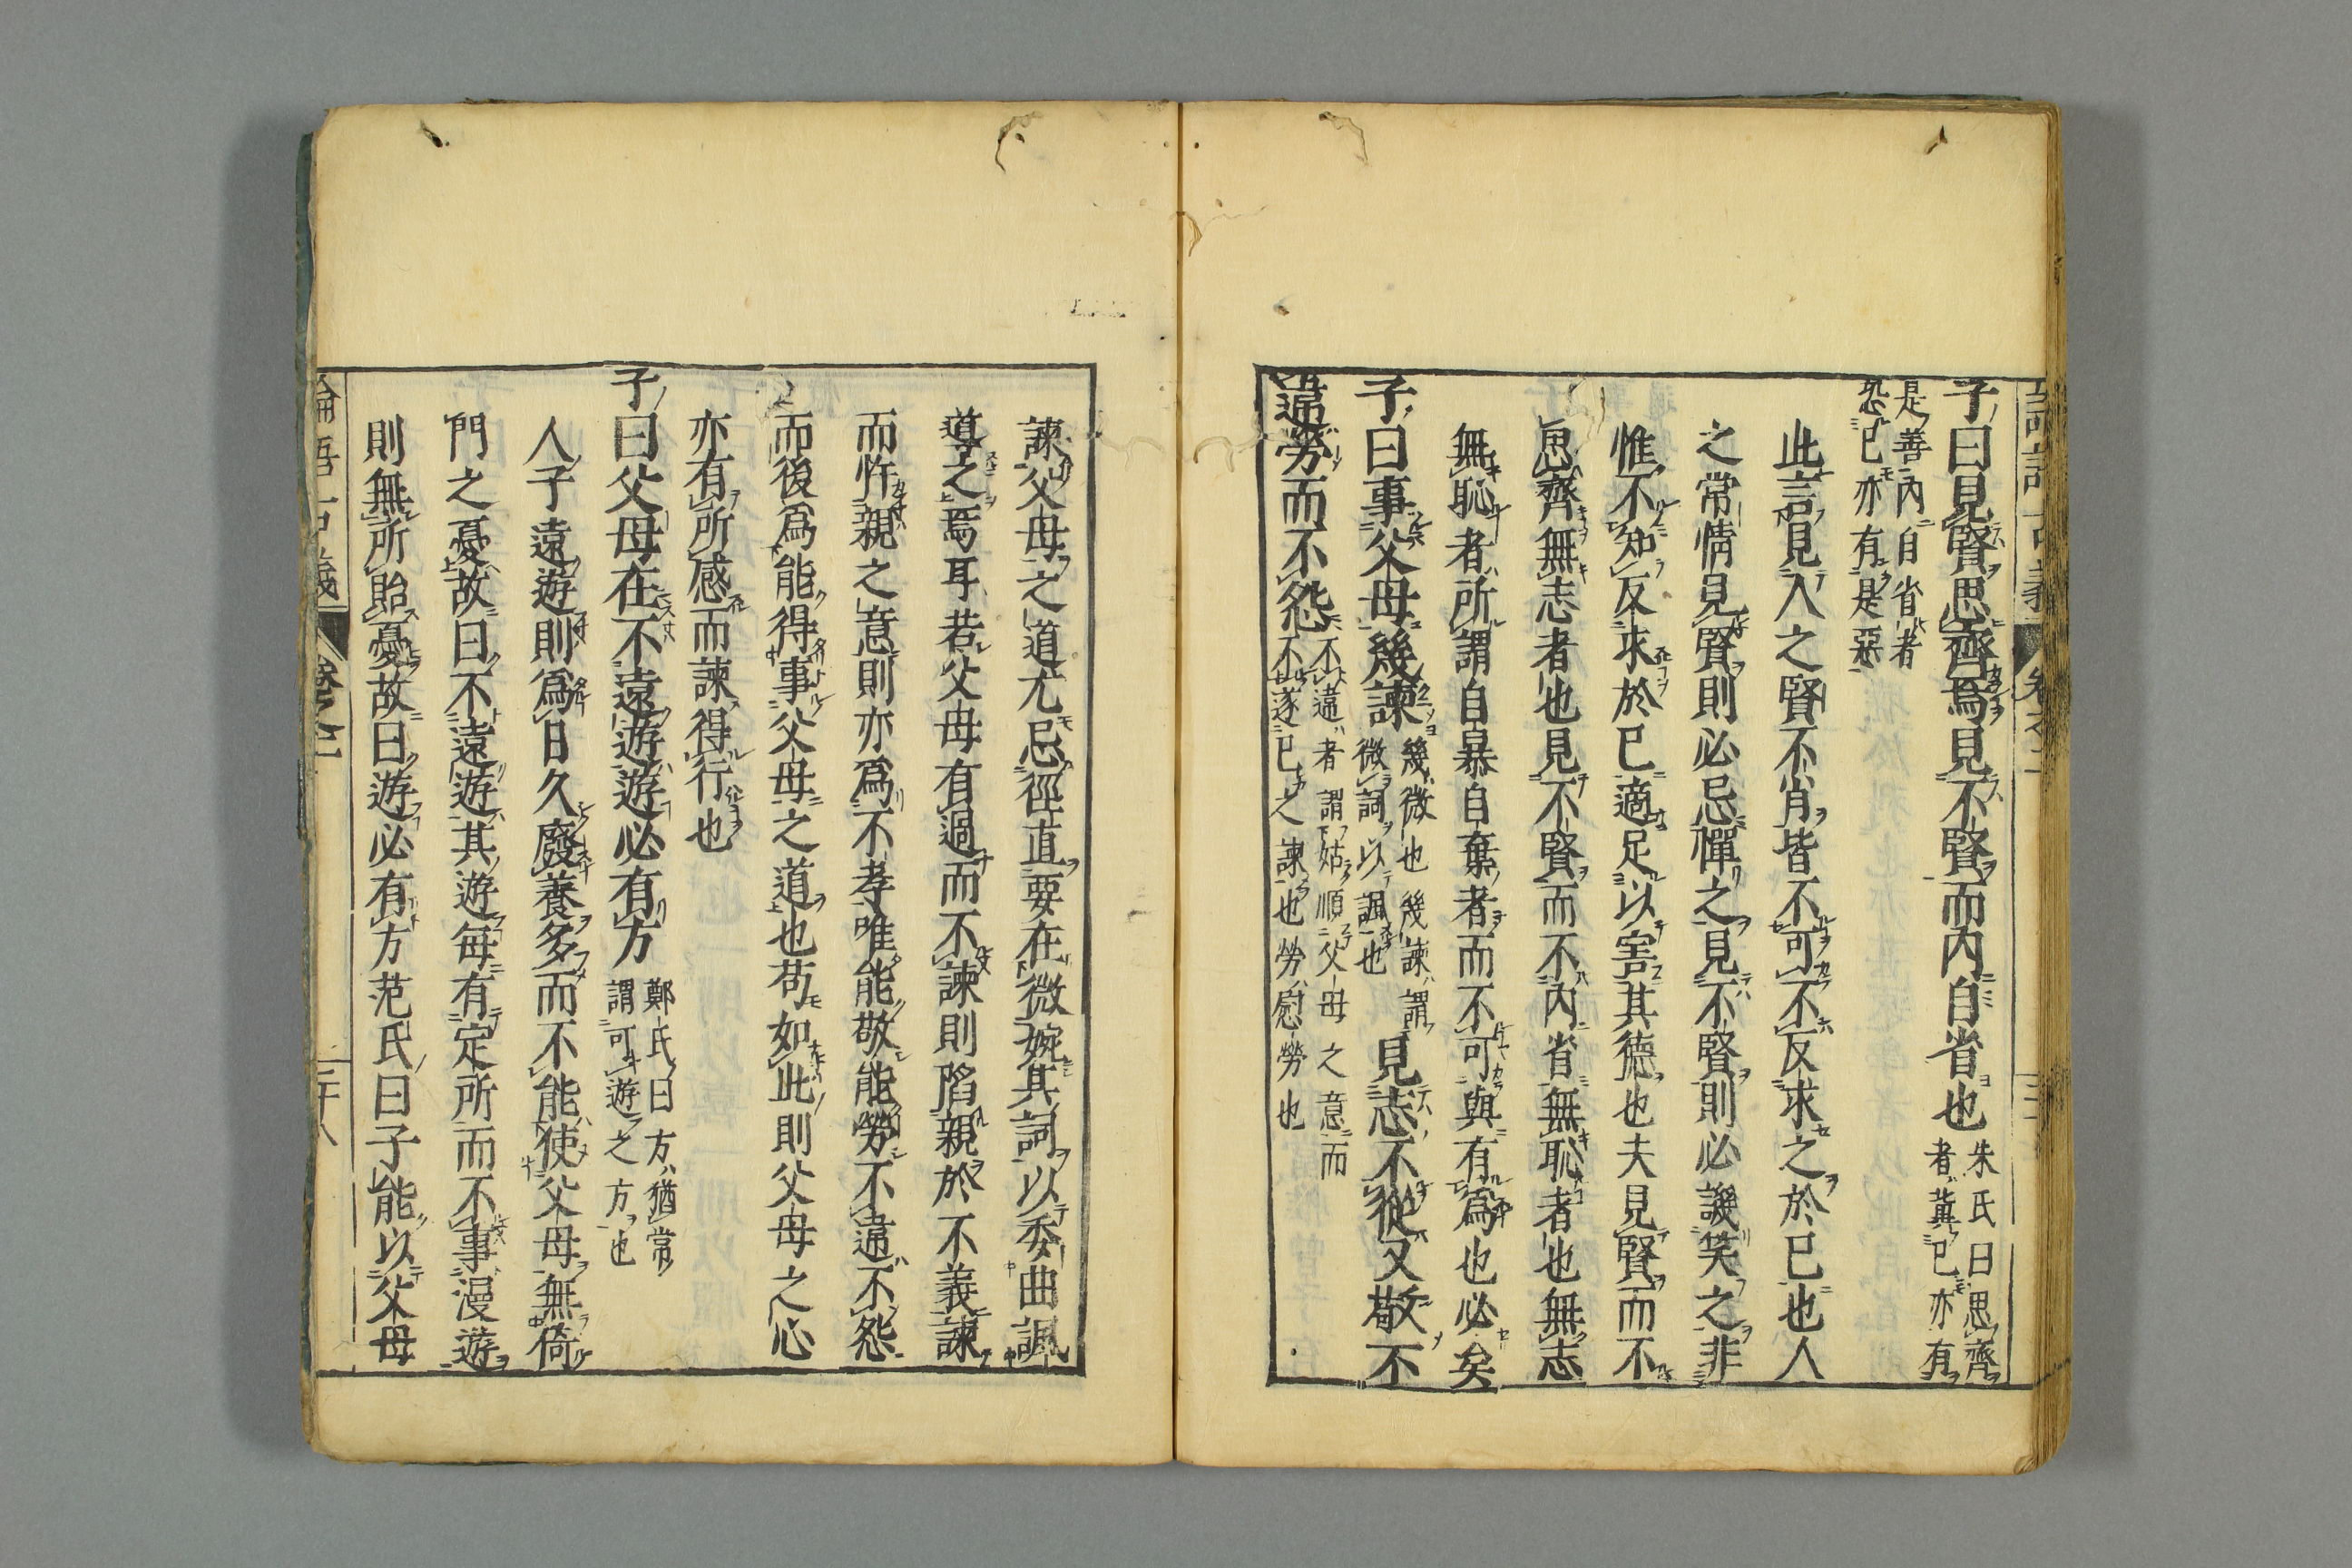 子曰見賢思齊焉見不賢而內自省也 朱氏曰思齊
者冀已亦有
是善內自省者
恐已亦有是惡
此言見人之賢不肖皆不可不反求之於已也人
之常情見賢則必忌憚之見不賢則必譏笑之非
惟不知反求於已適足以害其德也夫見賢而不
思齊無志者也見不賢而不內省無恥者也無志
無恥者所謂自暴自棄者而不可與有爲也必矣
子曰事父母幾諫 幾微也幾諫謂
微詞以諷也 見志不從又敬不
違勞而不怨 不違者謂姑順父母之意而
不遂已之諫也勞慰勞也
諫父母之道尤忌徑直要在微婉其詞以委曲諷
道之焉耳若父母有過而不諫則陷親於不義諫
而忤親之意則亦爲不孝唯能敬能勞不違不怨
而後爲能得事父母之道也苟如此則父母之心
亦有所感而諫得行也
子曰父母在不遠遊遊必有方 鄭氏曰方猶常
謂可遊之方也
人子遠遊則爲日久廢養多而不能使父母無倚
門之憂故曰不遠遊其遊每有定所而不事漫遊
則無所貽憂故曰遊必有方范氏曰子能以父母
論語古義 卷之二 二十八